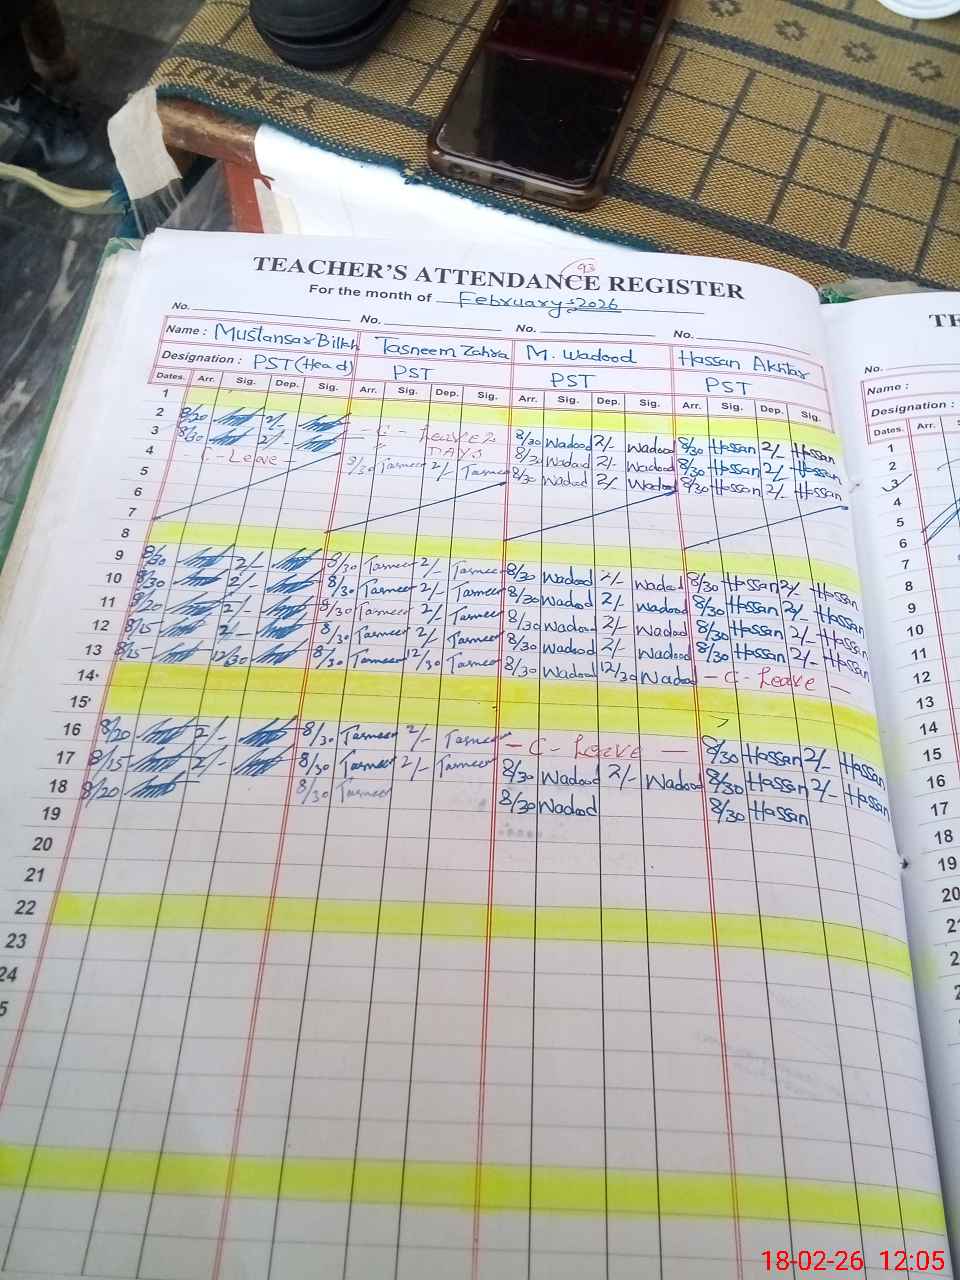 93
TEACHER'S ATTENDANCE REGISTER
For the month of February 2026
No. No. No. No.
Name : Mustansar Billah Tasneem Zahra M. Wadood Hassan Akhtar
Designation : PST (Head) PST PST PST
Dates. Arr. Sig. Dep. Sig. Arr. Sig. Dep. Sig. Arr. Sig. Dep. Sig. Arr. Sig. Dep. Sig.
1
2 8/20 2/- - C - Leave 2 8/30 Wadood 2/- Wadood 8/30 Hassan 2/- Hassan
3 8/30 2/- DAYS 8/30 Wadood 2/- Wadood 8/30 Hassan 2/- Hassan
4 - C - Leave - 8/30 Tasneem 2/- Tasneem 8/30 Wadood 2/- Wadood 8/30 Hassan 2/- Hassan
5
6
7
8
9 8/30 2/- 8/30 Tasneem 2/- Tasneem 8/30 Wadood 2/- Wadood 8/30 Hassan 2/- Hassan
10 8/30 2/- 8/30 Tasneem 2/- Tasneem 8/30 Wadood 2/- Wadood 8/30 Hassan 2/- Hassan
11 8/20 2/- 8/30 Tasneem 2/- Tasneem 8/30 Wadood 2/- Wadood 8/30 Hassan 2/- Hassan
12 8/15 2/- 8/30 Tasneem 2/- Tasneem 8/30 Wadood 2/- Wadood 8/30 Hassan 2/- Hassan
13 8/15 12/30 8/30 Tasneem 12/30 Tasneem 8/30 Wadood 12/30 Wadood - C - Leave -
14
15
16 8/20 2/- 8/30 Tasneem 2/- Tasneem - C - Leave - 8/30 Hassan 2/- Hassan
17 8/15 2/- 8/30 Tasneem 2/- Tasneem 8/30 Wadood 2/- Wadood 8/30 Hassan 2/- Hassan
18 8/20 8/30 Tasneem 8/30 Wadood 8/30 Hassan
19
20
21
22
23
24
5
TE
No.
Name :
Designation :
Dates. Arr. S
1
2
3
4
5
6
7
8
9
10
11
12
13
14
15
16
17
18
19
20
18-02-26 12:05